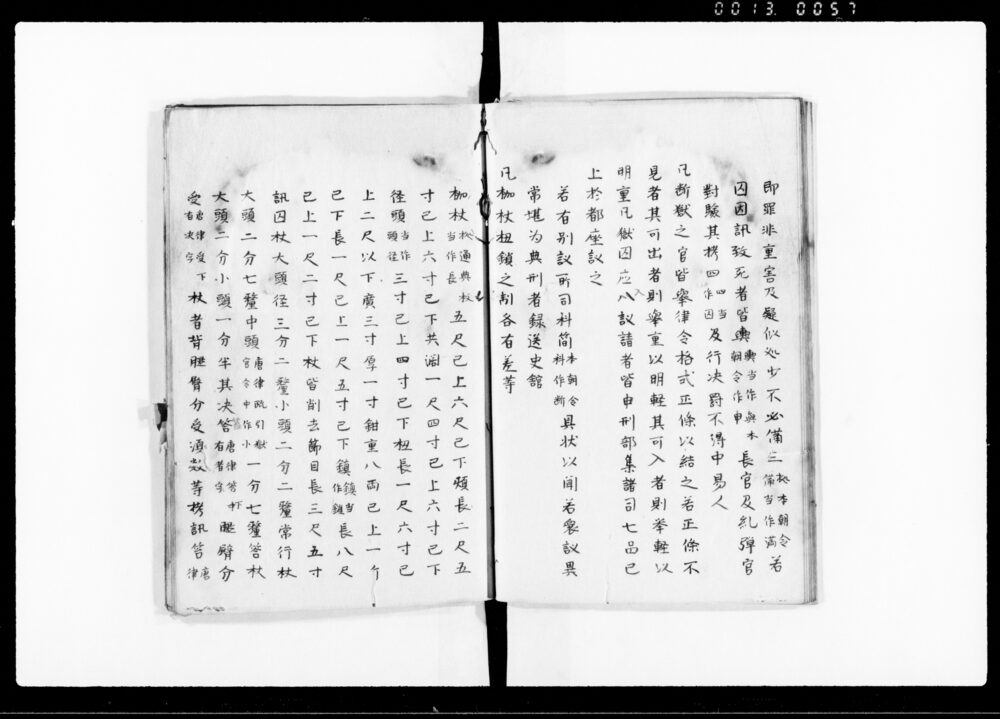 0013 0057
即罪非重害及疑似処少不必備三按本朝令備当作満若
囚因訊致死者皆輿輿当作與本朝令作申長官及糺弾官
対驗其拷四四当作囚及行決罸不得中易人
凡断獄之官皆舉律令格式正條以結之若正條不
見者其可出者則舉重以明軽其可入者則挙軽以
明重凡獄囚応入八議請者皆申刑部集諸司七品已
上於都座議之
若有別議所司科簡本朝令科作断具状以聞若衆議異
常堪为典刑者録送史舘
凡枷杖杻鎖之制各有差等
枷杖杖通典枚当作長五尺已上六尺已下頬長二尺五
寸已上六寸已下共濶一尺四寸已上六寸已下
径頭当作頭径三寸已上四寸已下杻長一尺六寸已
上二尺以下廣三寸厚一寸鉗重八両已上一斤
已下長一尺已上一尺五寸已下鎖鎖当作鏁長八尺
已上一尺二寸已下杖皆削去節目長三尺五寸
訊囚杖大頭径三分二釐小頭二分二釐常行杖
大頭二分七釐中頭唐律疏引獄官令中作小一分七釐笞杖
大頭二分小頭一分半其決笞唐律笞下有者字腿臀分
受唐律受下有決字杖者背腿臀分受須数等拷訊笞唐律